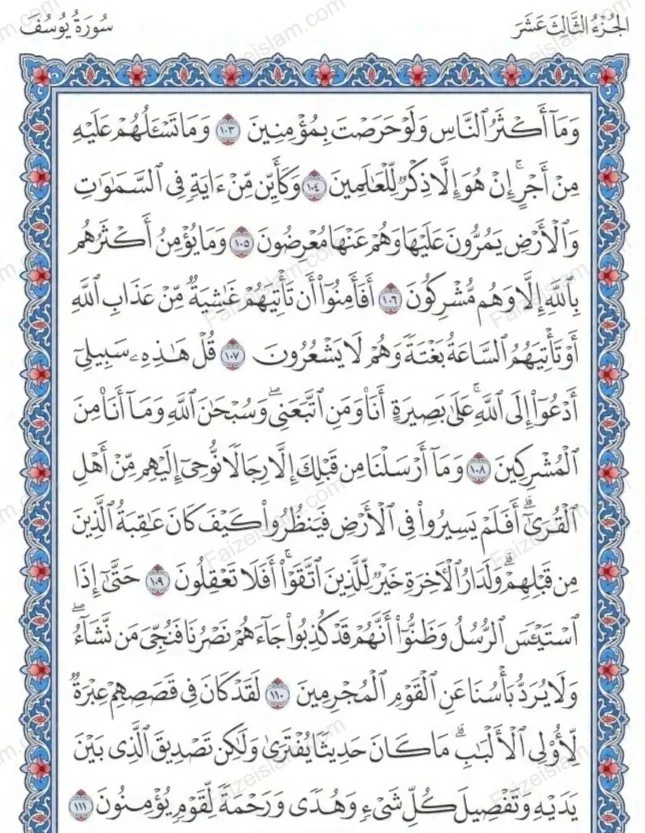 الجُزْءُ الثَّالِثَ عَشَرَ
سُورَةُ يُوسُفَ
وَمَآ أَكْثَرُ ٱلنَّاسِ وَلَوْ حَرَصْتَ بِمُؤْمِنِينَ ١٠٣ وَمَا تَسْـَٔلُهُمْ عَلَيْهِ
مِنْ أَجْرٍۚ إِنْ هُوَ إِلَّا ذِكْرٌ لِّلْعَٰلَمِينَ ١٠٤ وَكَأَيِّن مِّنْ ءَايَةٍ فِى ٱلسَّمَٰوَٰتِ
وَٱلْأَرْضِ يَمُرُّونَ عَلَيْهَا وَهُمْ عَنْهَا مُعْرِضُونَ ١٠٥ وَمَا يُؤْمِنُ أَكْثَرُهُم
بِٱللَّهِ إِلَّا وَهُم مُّشْرِكُونَ ١٠٦ أَفَأَمِنُوٓا۟ أَن تَأْتِيَهُمْ غَٰشِيَةٌ مِّنْ عَذَابِ ٱللَّهِ
أَوْ تَأْتِيَهُمُ ٱلسَّاعَةُ بَغْتَةً وَهُمْ لَا يَشْعُرُونَ ١٠٧ قُلْ هَٰذِهِۦ سَبِيلِىٓ
أَدْعُوٓا۟ إِلَى ٱللَّهِۚ عَلَىٰ بَصِيرَةٍ أَنَا۠ وَمَنِ ٱتَّبَعَنِىۖ وَسُبْحَٰنَ ٱللَّهِ وَمَآ أَنَا۠ مِنَ
ٱلْمُشْرِكِينَ ١٠٨ وَمَآ أَرْسَلْنَا مِن قَبْلِكَ إِلَّا رِجَالًا نُّوحِىٓ إِلَيْهِم مِّنْ أَهْلِ
ٱلْقُرَىٰٓۗ أَفَلَمْ يَسِيرُوا۟ فِى ٱلْأَرْضِ فَيَنظُرُوا۟ كَيْفَ كَانَ عَٰقِبَةُ ٱلَّذِينَ
مِن قَبْلِهِمْۗ وَلَدَارُ ٱلْءَاخِرَةِ خَيْرٌ لِّلَّذِينَ ٱتَّقَوْا۟ۚ أَفَلَا تَعْقِلُونَ ١٠٩ حَتَّىٰٓ إِذَا
ٱسْتَيْـَٔسَ ٱلرُّسُلُ وَظَنُّوٓا۟ أَنَّهُمْ قَدْ كُذِبُوا۟ جَآءَهُمْ نَصْرُنَا فَنُجِّىَ مَن نَّشَآءُۖ
وَلَا يُرَدُّ بَأْسُنَا عَنِ ٱلْقَوْمِ ٱلْمُجْرِمِينَ ١١٠ لَقَدْ كَانَ فِى قَصَصِهِمْ عِبْرَةٌ
لِّأُو۟لِى ٱلْأَلْبَٰبِۗ مَا كَانَ حَدِيثًا يُفْتَرَىٰ وَلَٰكِن تَصْدِيقَ ٱلَّذِى بَيْنَ
يَدَيْهِ وَتَفْصِيلَ كُلِّ شَىْءٍ وَهُدًى وَرَحْمَةً لِّقَوْمٍ يُؤْمِنُونَ ١١١
Faizeislam.com